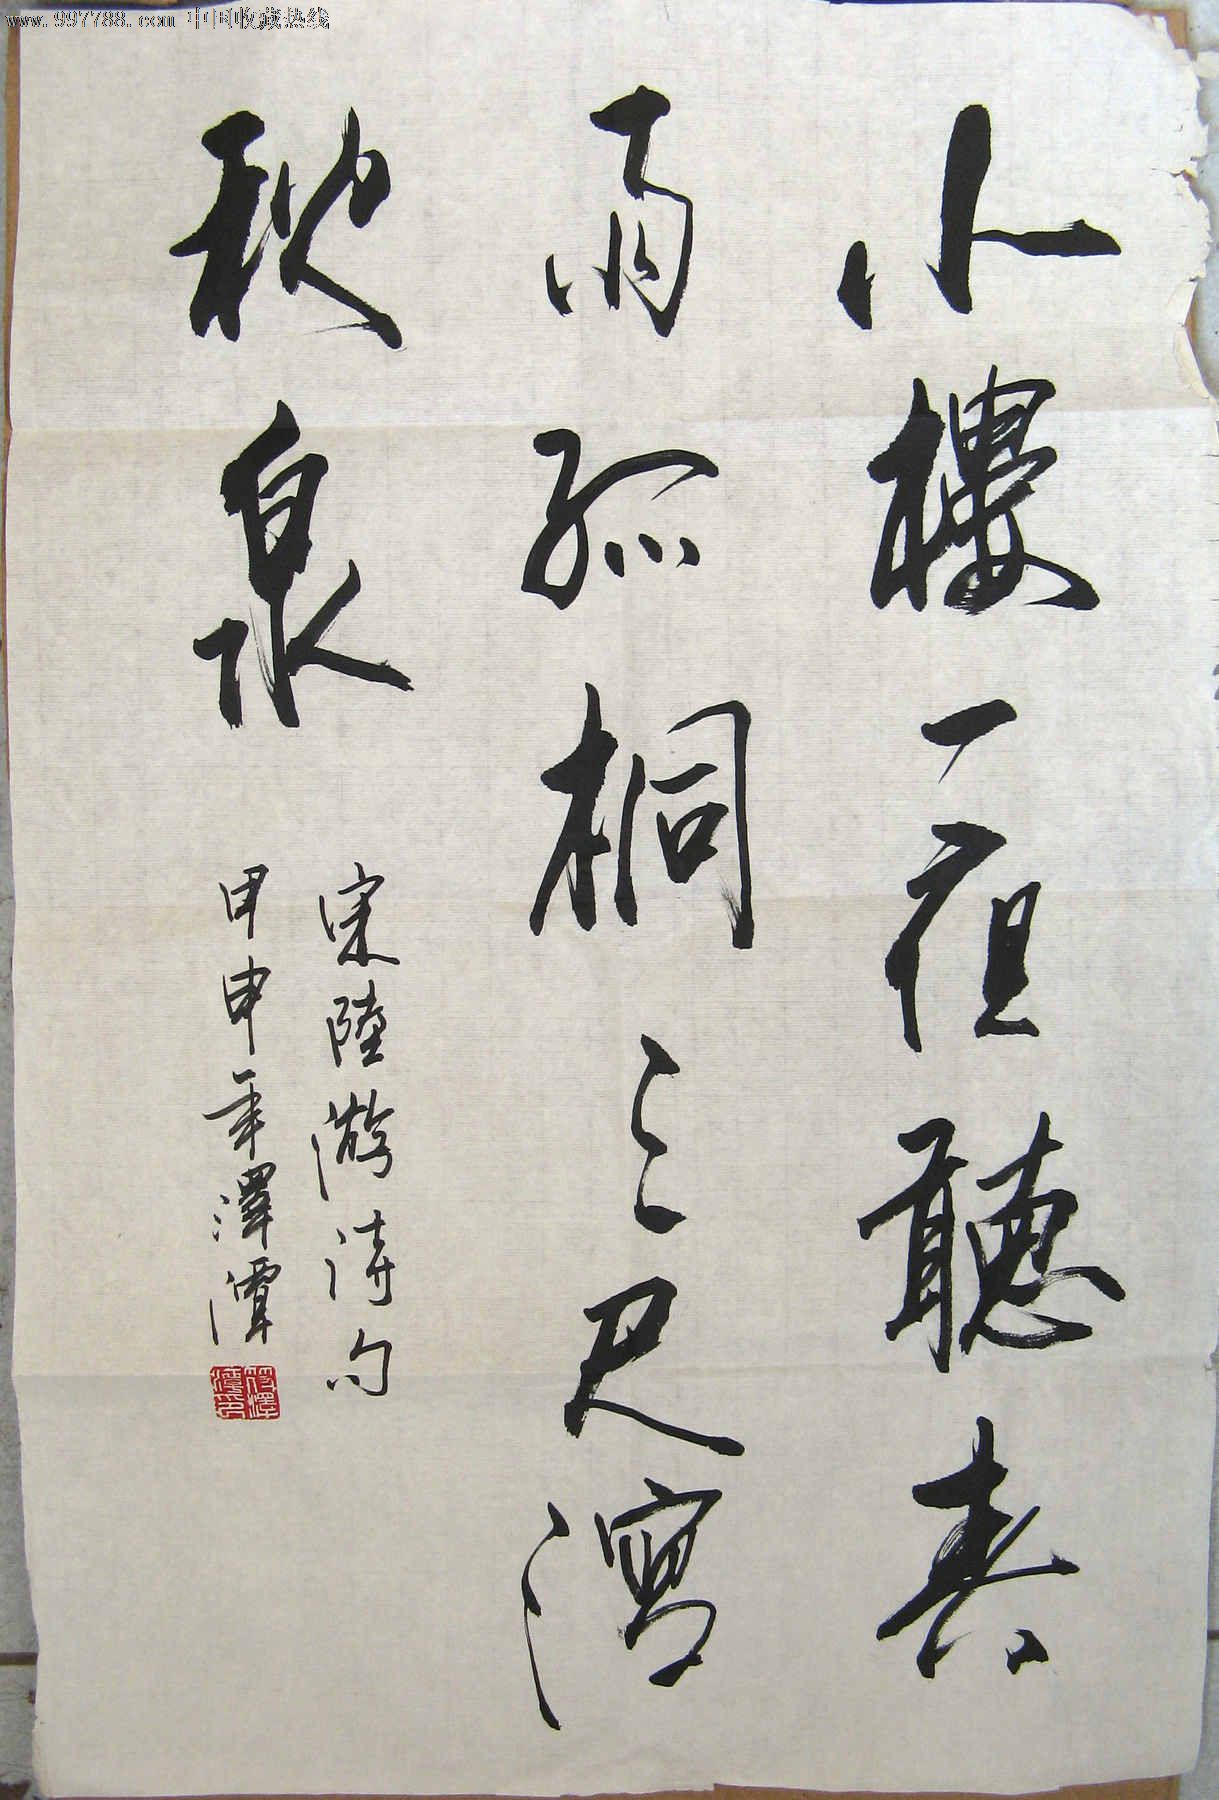 www.997788.com 中国收藏热线
小樓一夜聽春
雨孤桐三尺瀉
秋泉
宋陸游詩句
甲申年澤潭